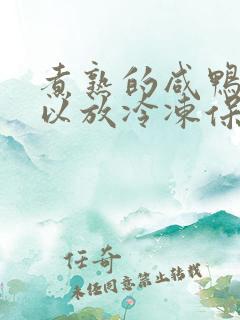 煮熟的咸鸭
以放冷冻保
任奇
未经同意禁止转载